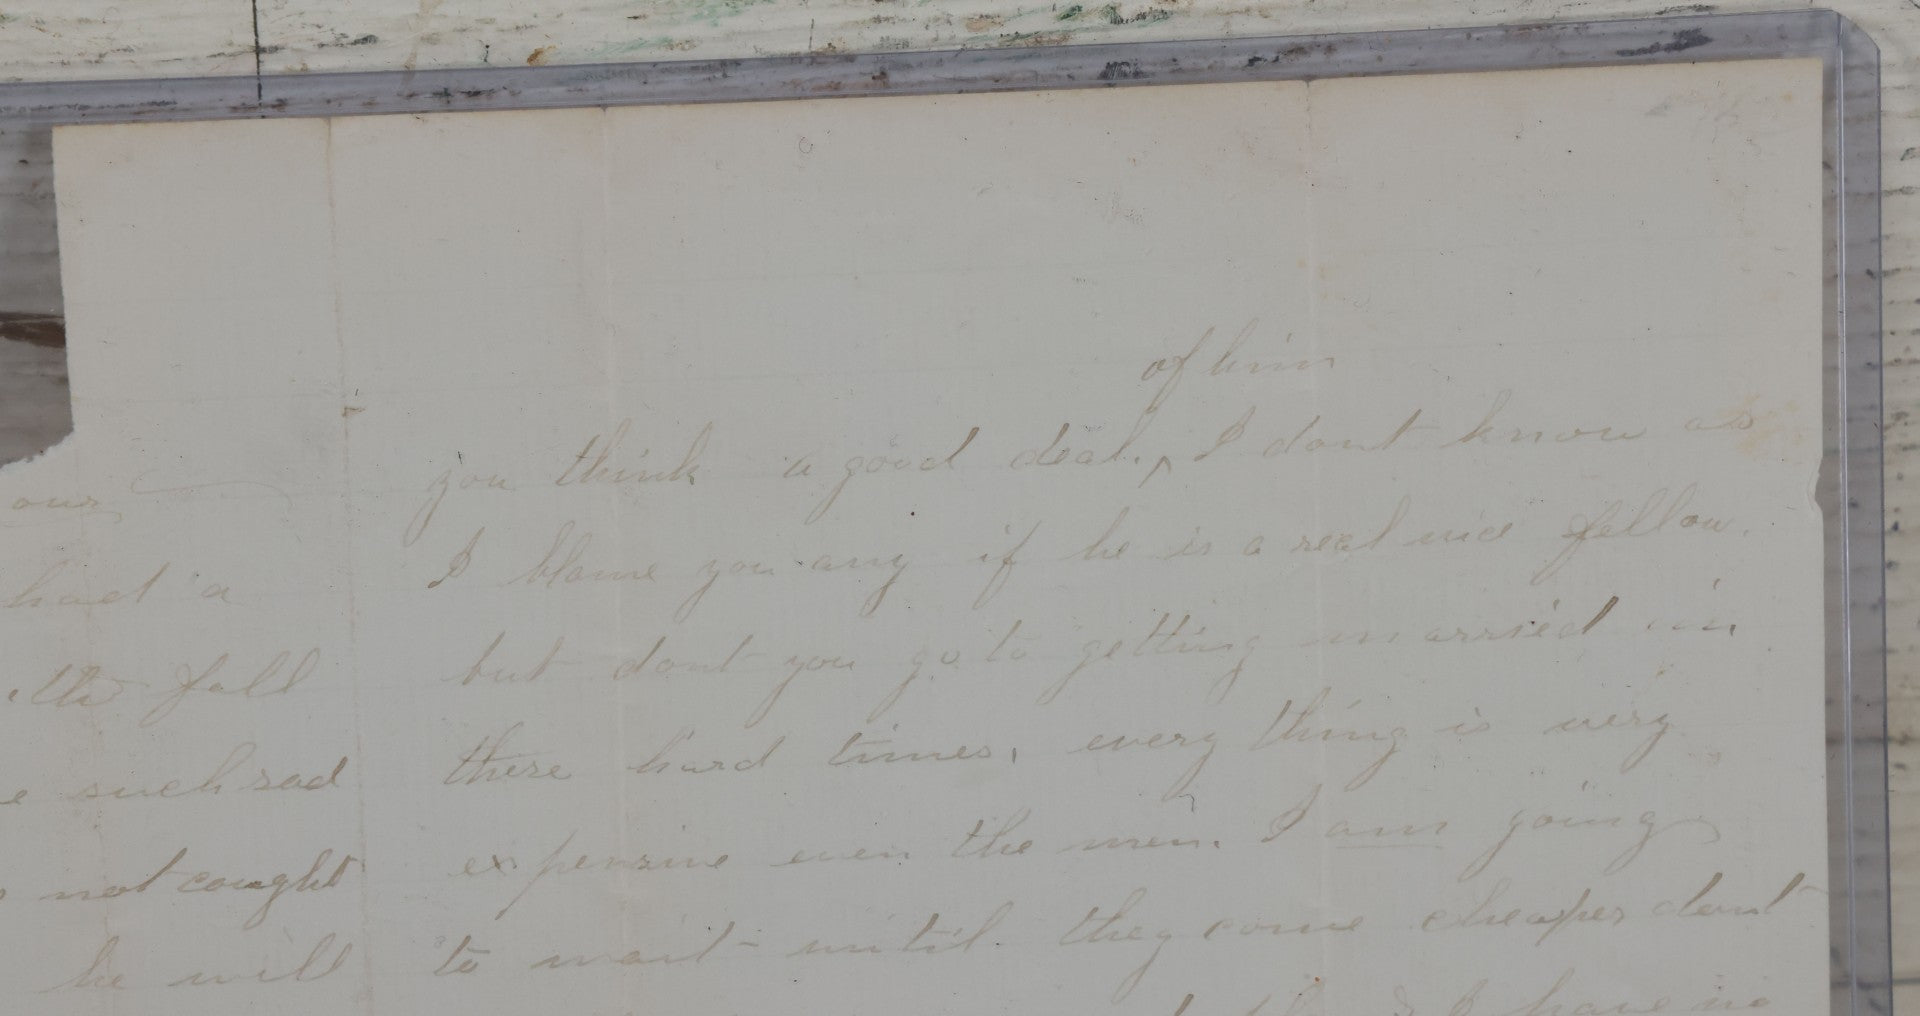 our
had a
the fall
such sad
not caught
he will
of him
you think a good deal. ^ I dont know as
I blame you any if he is a real nice fellow.
but dont you go to getting married in
these hard times, every thing is very
expensive even the men. I am going
to wait until they come cheaper dont
I have no